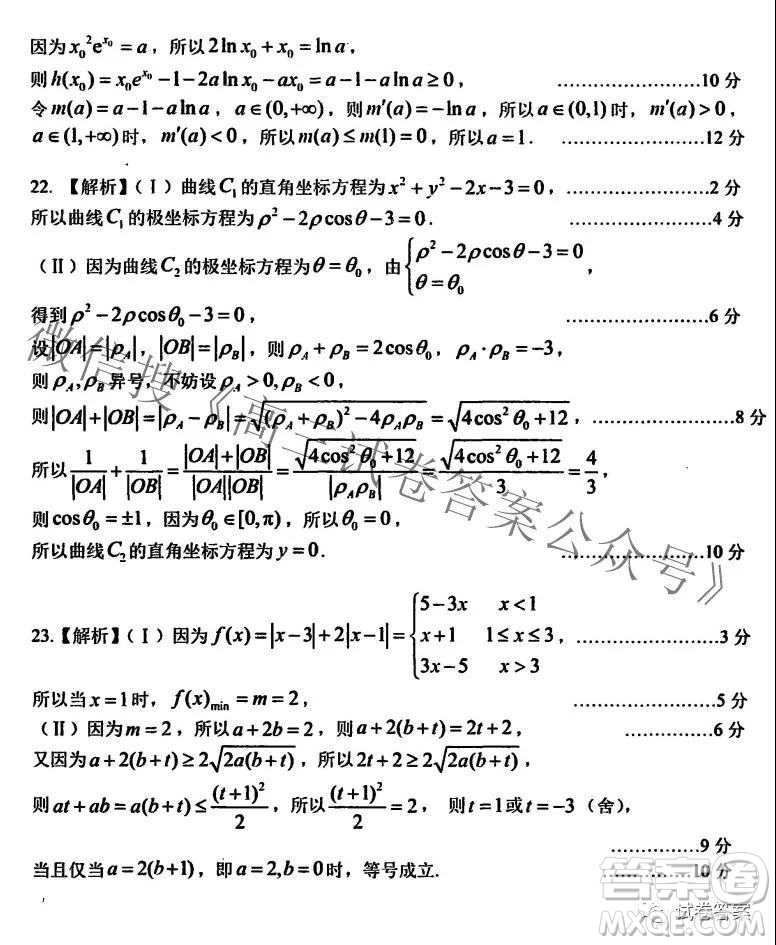 因为x₀²e^{x₀}=a，所以2lnx₀+x₀=lna，
则h(x₀)=x₀e^{x₀}-1-2alnx₀-ax₀=a-1-alna≥0，……………10分
令m(a)=a-1-alna，a∈(0,+∞)，则m′(a)=-lna，所以a∈(0,1)时，m′(a)>0，
a∈(1,+∞)时，m′(a)<0，所以m(a)≤m(1)=0，所以a=1．……………12分
22. 【解析】(Ⅰ)曲线C₁的直角坐标方程为x²+y²-2x-3=0，……………2分
所以曲线C₁的极坐标方程为ρ²-2ρcosθ-3=0．……………4分
(Ⅱ)因为曲线C₂的极坐标方程为θ=θ₀，由{ρ²-2ρcosθ-3=0
θ=θ₀，
得到ρ²-2ρcosθ₀-3=0，……………6分
设|OA|=|ρ_A|，|OB|=|ρ_B|，则ρ_A+ρ_B=2cosθ₀，ρ_A·ρ_B=-3，
则ρ_A,ρ_B异号，不妨设ρ_A>0,ρ_B<0，
则|OA|+|OB|=|ρ_A-ρ_B|=√((ρ_A+ρ_B)²-4ρ_Aρ_B)=√(4cos²θ₀+12)，……………8分
所以1/|OA|+1/|OB|=(|OA|+|OB|)/(|OA||OB|)=√(4cos²θ₀+12)/|ρ_Aρ_B|=√(4cos²θ₀+12)/3=4/3，
则cosθ₀=±1，因为θ₀∈[0,π)，所以θ₀=0，
所以曲线C₂的直角坐标方程为y=0．……………10分
23.【解析】(Ⅰ)因为f(x)=|x-3|+2|x-1|={5-3x x<1
x+1 1≤x≤3，……………3分
3x-5 x>3
所以当x=1时，f(x)_min=m=2，……………5分
(Ⅱ)因为m=2，所以a+2b=2，则a+2(b+t)=2t+2，……………6分
又因为a+2(b+t)≥2√(2a(b+t))，所以2t+2≥2√(2a(b+t))，
则at+ab=a(b+t)≤(t+1)²/2，所以(t+1)²/2=2，则t=1或t=-3（舍），
……………9分
当且仅当a=2(b+1)，即a=2,b=0时，等号成立.……………10分
微信搜《高三试卷答案公众号》
答案圈
试卷答案
MXQE.COM